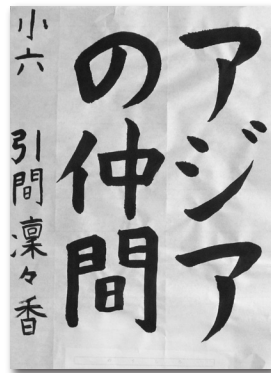 アジア
の仲間
小六 引間凜々香